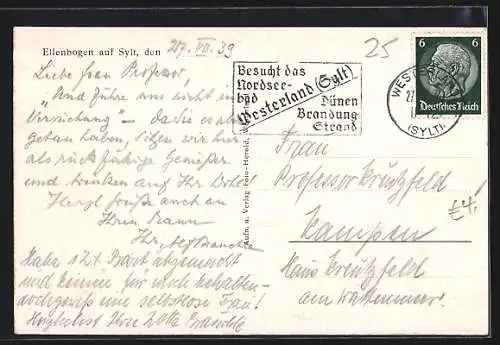 Ellenbogen auf Sylt, den 27. VII. 39
Liebe Frau Professor,
"Und führe uns nicht in
Versuchung" – da Sie es aber
getan haben, sitzen wir hier
als rückfällige Genießer
und trinken auf Ihr Wohl!
Herzl. Grüße auch an
Ihren Mann
Ihr
Habe 12 t. abgemacht
und keinen für mich behalten –
doch gewiss eine selbstlose Frau!
Herzlichst Ihre Lotte
25
Besucht das
Nordsee-
bad
Westerland (Sylt)
Dünen
Brandung
Strand
WESTERLAND
(SYLT)
6 6
Deutsches Reich
Aufn. u. Verlag Foto-Herold,
Frau
Professor Kreutzfeld
€4,
Kampen
Haus Kreutzfeld
am Wattenmeer.